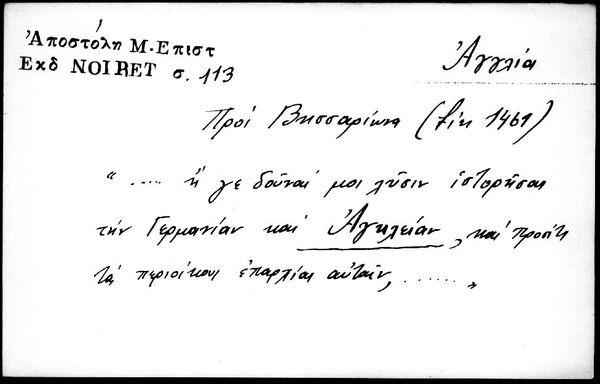 Ἀποστόλη Μ. Επιστ
Εκδ NOIRET σ. 113
Ἀγγλία
Πρὸς Βησσαρίωνα (fin 1461)
“ ..... ἤ γε δοῦναί μοι λῦσιν ἱστορῆσαι
τὴν Γερμανίαν καὶ Ἀγκλείαν, καὶ προσέτι
τὰς περιοίκους ἐπαρχίας αὐταῖν, ....... „